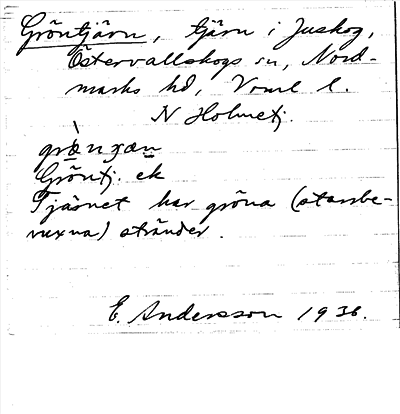 Gröntjärn, tjärn i Juskog,
Östervallskogs sn, Nord-
marks hd, Vrml l.
N Holmetj.
grɶ̀nɟæn
Gröntj. ek
Tjärnet har gröna (starrbe-
vuxna) stränder.
E. Andersson 1936.